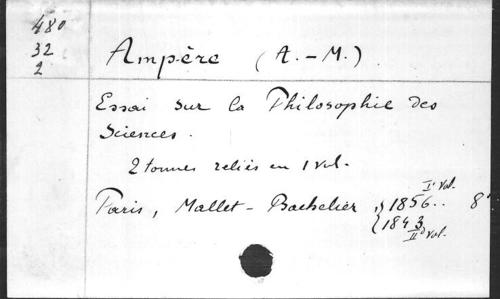 480
32
2
Ampère (A.-M.)
Essai sur la Philosophie des
Sciences.
2 tomes reliés en 1 vol.
Paris, Mallet-Bachelier, { 1856.. Iᵉʳ vol. 8°
{ 1843 IIᵈ vol.